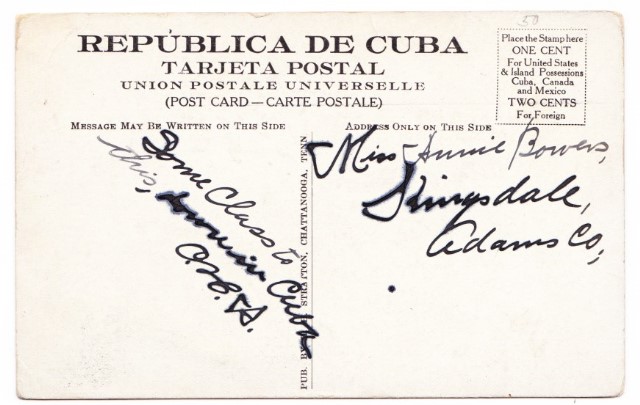 50
REPÚBLICA DE CUBA
TARJETA POSTAL
UNION POSTALE UNIVERSELLE
(POST CARD — CARTE POSTALE)
Place the Stamp here
ONE CENT
For United States
& Island Possessions
Cuba, Canada
and Mexico
TWO CENTS
For Foreign
MESSAGE MAY BE WRITTEN ON THIS SIDE
ADDRESS ONLY ON THIS SIDE
Some Class to
this, down in Cuba
PUB. STRATTON, CHATTANOOGA, TENN
Miss Annie Bowers,
Kingsdale,
Adams Co,